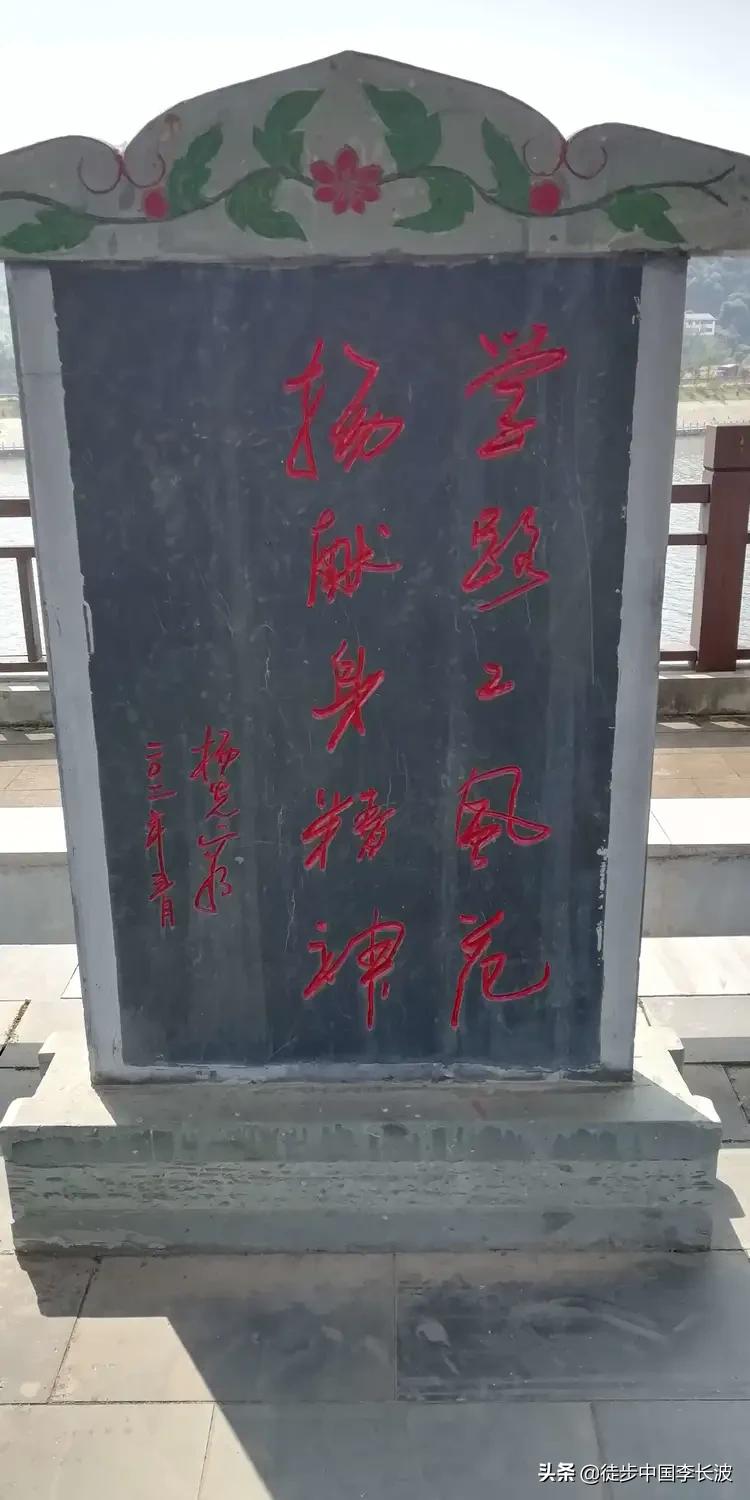 学路工风范
扬献身精神
二〇一二年五月
头条 @徒步中国李长波